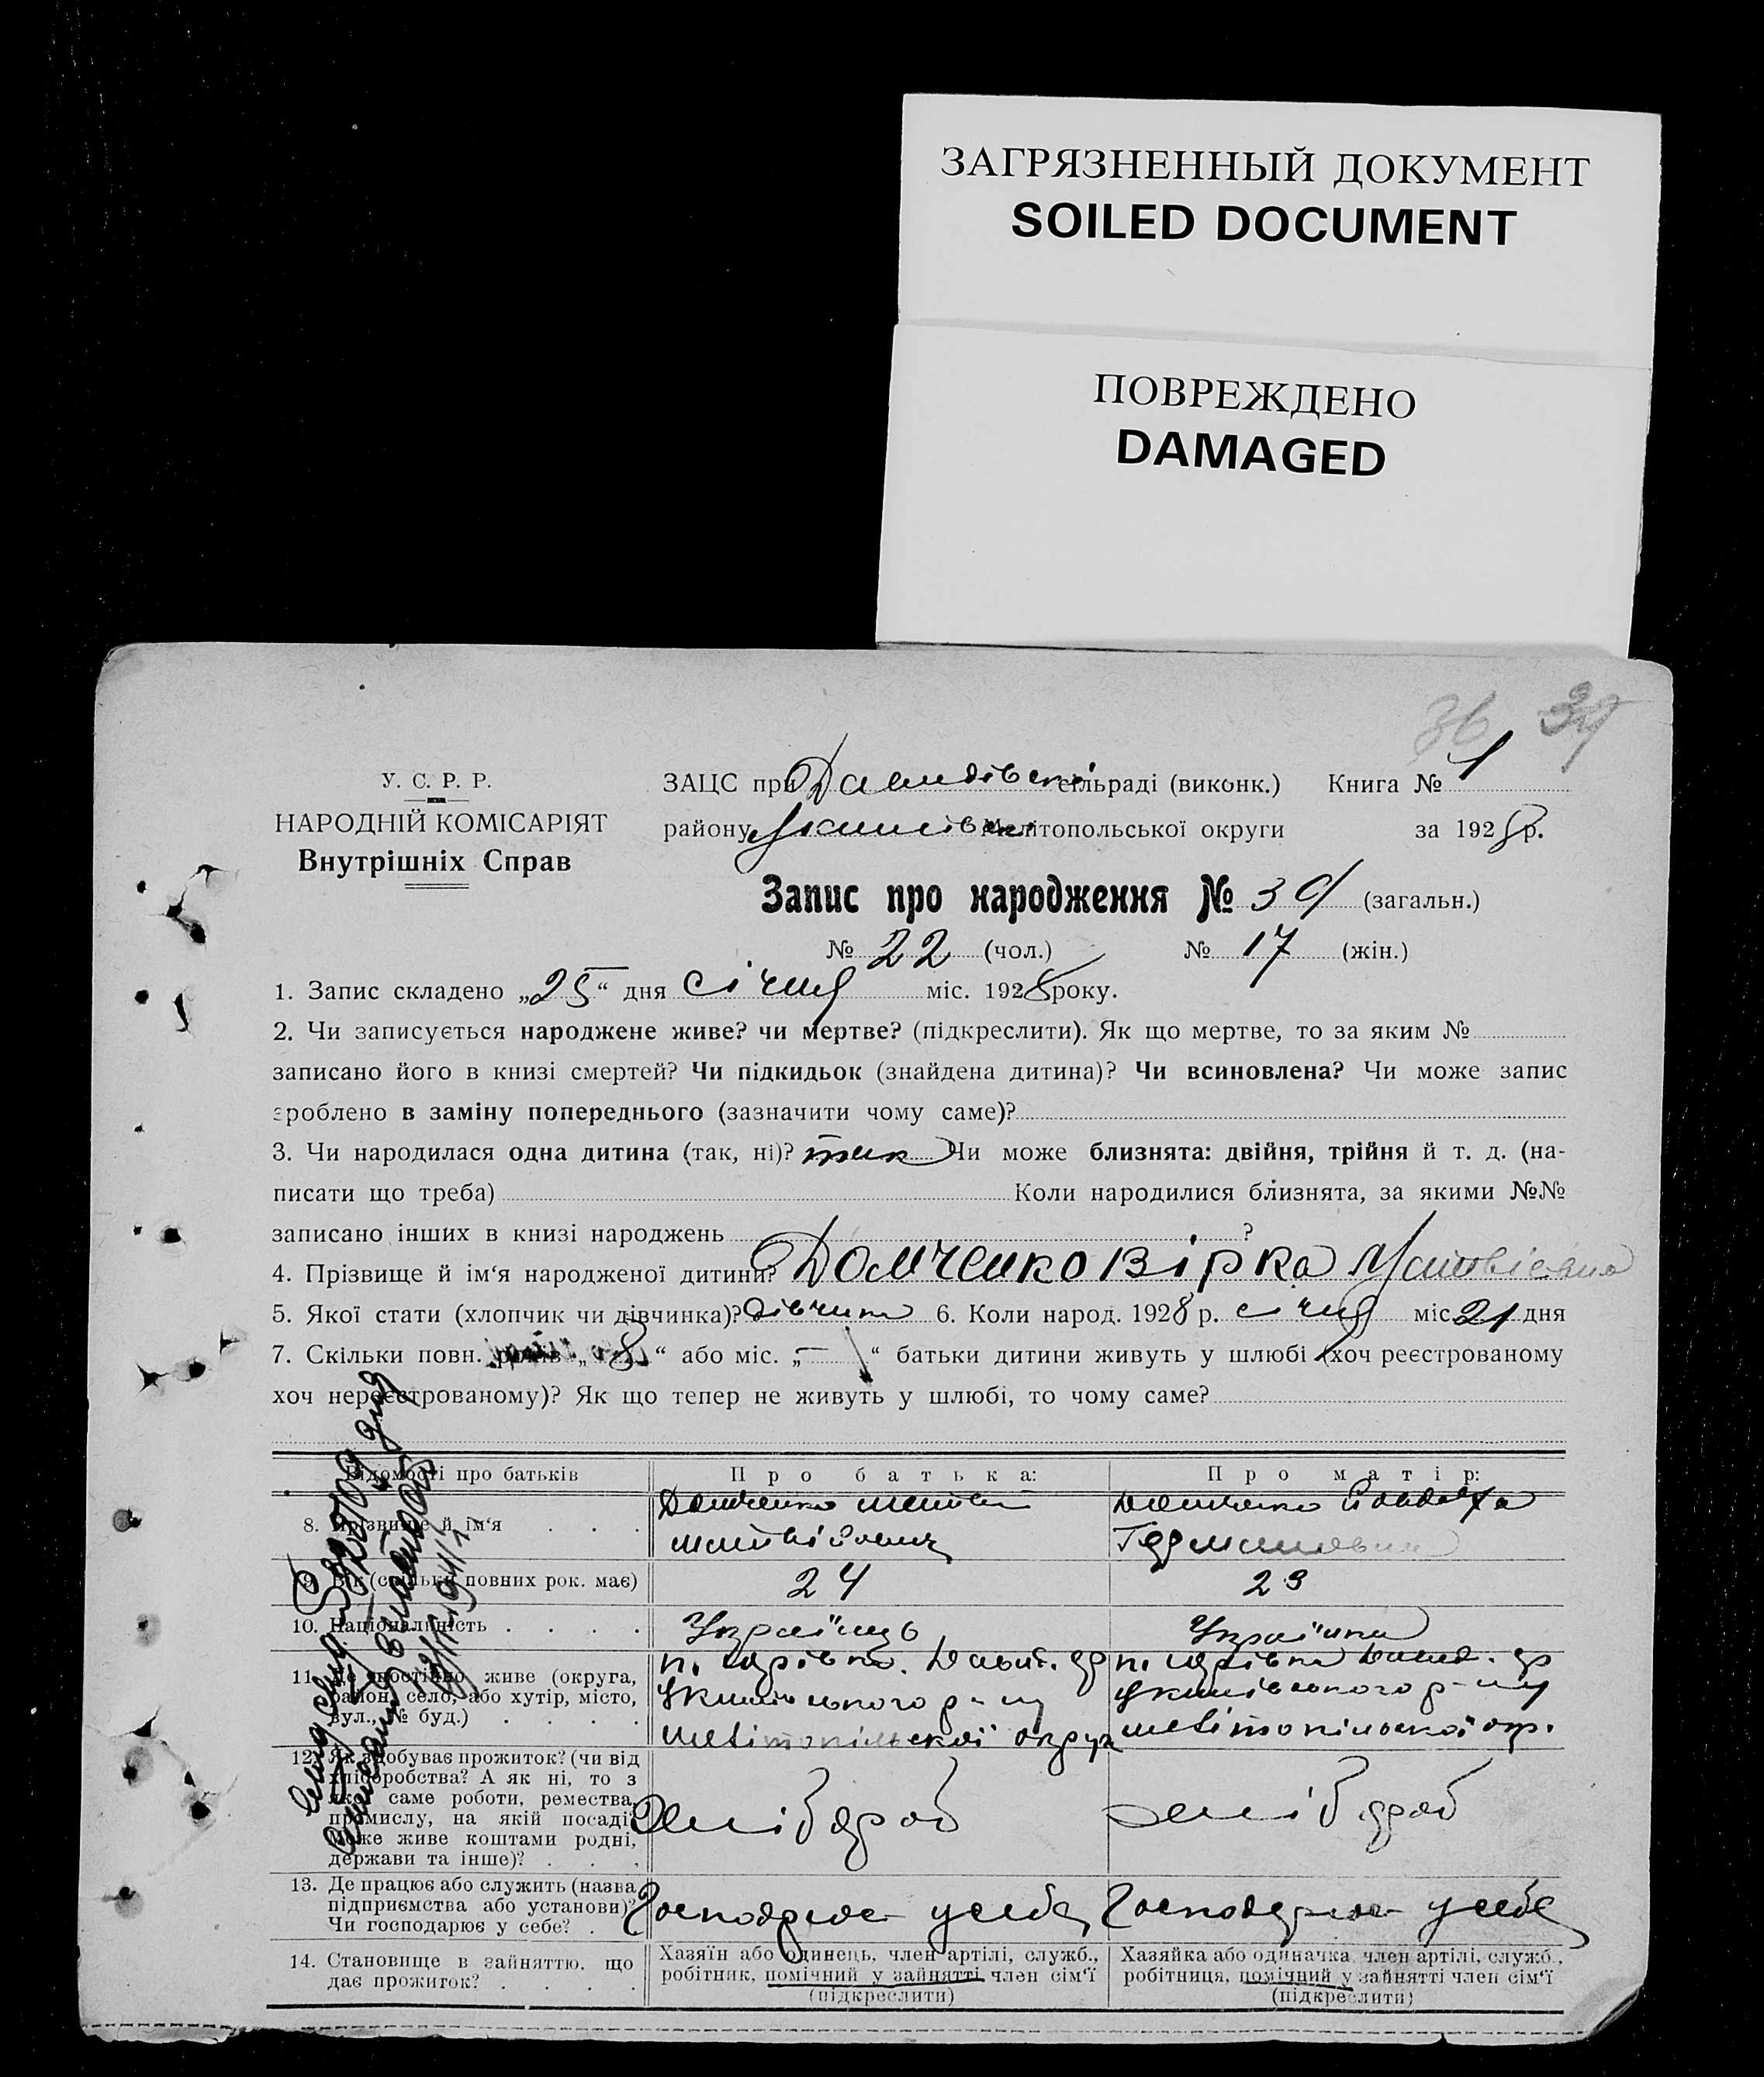 ЗАГРЯЗНЕННЫЙ ДОКУМЕНТ
SOILED DOCUMENT
ПОВРЕЖДЕНО
DAMAGED
36
У. С. Р. Р.
НАРОДНІЙ КОМІСАРІЯТ
Внутрішніх Справ
ЗАЦС при сільраді (виконк.) Книга № 1
району Мелітопольської округи за 1928 р.
Запис про народження № 39 (загальн.)
№ 22 (чол.) № 17 (жін.)
1. Запис складено „25“ дня січня міс. 1928 року.
2. Чи записується народжене живе? чи мертве? (підкреслити). Як що мертве, то за яким №
записано його в книзі смертей? Чи підкидьок (знайдена дитина)? Чи всиновлена? Чи може запис
зроблено в заміну попереднього (зазначити чому саме)?
3. Чи народилася одна дитина (так, ні)? так Чи може близнята: двійня, трійня й т. д. (на-
писати що треба) Коли народилися близнята, за якими №№
записано інших в книзі народжень ?
4. Прізвище й ім‘я народженої дитини? Домченко Вірка
5. Якої стати (хлопчик чи дівчинка)? дівчина 6. Коли народ. 1928 р. січня міс. 21 дня
7. Скільки повн. років „8“ або міс. „—“ батьки дитини живуть у шлюбі (хоч реєстрованому
хоч нереєстрованому)? Як що тепер не живуть у шлюбі, то чому саме?
Відомості про батьків Про батька: Про матір:
8. Прізвище й ім‘я . . . Домченко Домченко
9. Вік (скільки повних рок. має) 24 23
10. Національність . . . . Українець Українка
11. Де постійно живе (округа,
район, село, або хутір, місто,
вул., № буд.) . . . .
Мелітопільскої округи Мелітопільскої окр.
12. Як здобуває прожиток? (чи від
хліборобства? А як ні, то з
якої саме роботи, ремества,
промислу, на якій посаді?
Може живе коштами родні,
держави та інше)? . . .
хлібороб хлібороб
13. Де працює або служить (назва
підприємства або установи)?
Чи господарює у себе? .
Господарює у себе Господарює у себе
14. Становище в зайняттю, що
дає прожиток? . . . .
Хазяїн або одинець, член артілі, служб.,
робітник, помічний у зайнятті член сім‘ї
(підкреслити)
Хазяйка або одиначка, член артілі, служб.,
робітниця, помічний у зайнятті член сім‘ї
(підкреслити)